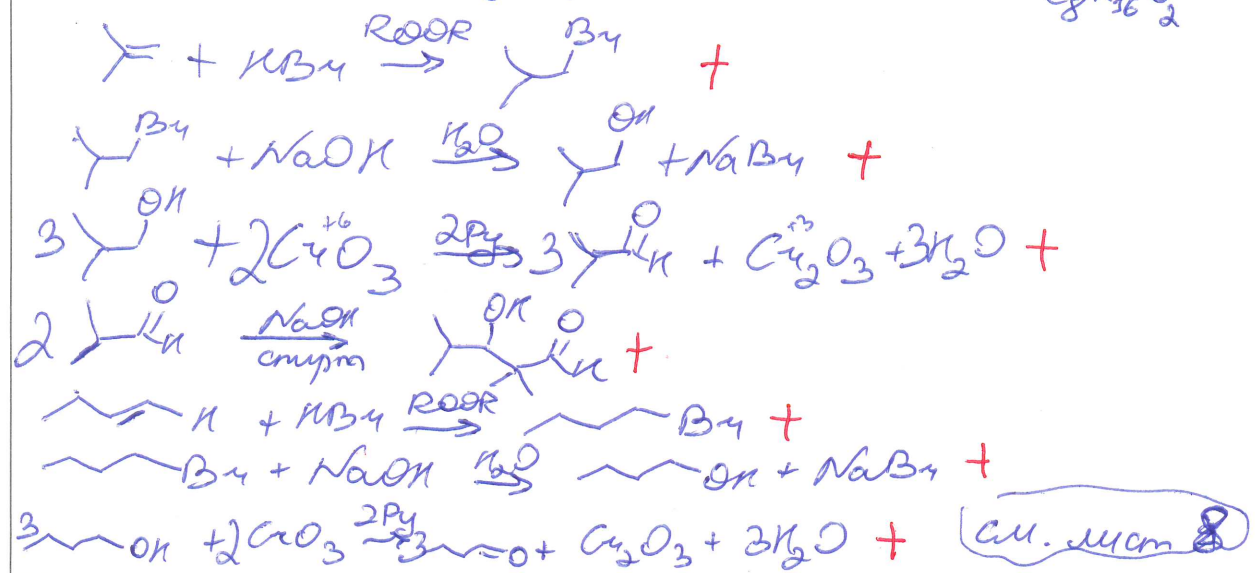 C8H16O2
+ HBr ROOR → Br +
Br + NaOH H2O → OH + NaBr +
3 OH + 2CrO3 +6 2Py → 3 O H + Cr2O3 +3 + 3H2O +
2 O H NaOH спирт → OH O H +
H + HBr ROOR → Br +
Br + NaOH H2O → OH + NaBr +
3 OH + 2CrO3 2Py → 3 O + Cr2O3 + 3H2O + см. лист 8